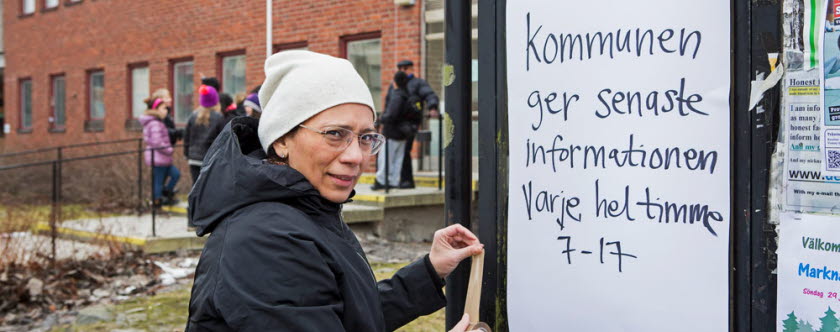 Kommunen
ger senaste
informationen
Varje heltimme
7-17
Honest
I am
as many
honest fa
inform he
And my
www.
Välkom
Markna
Söndag 29